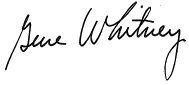 Gene Whitney